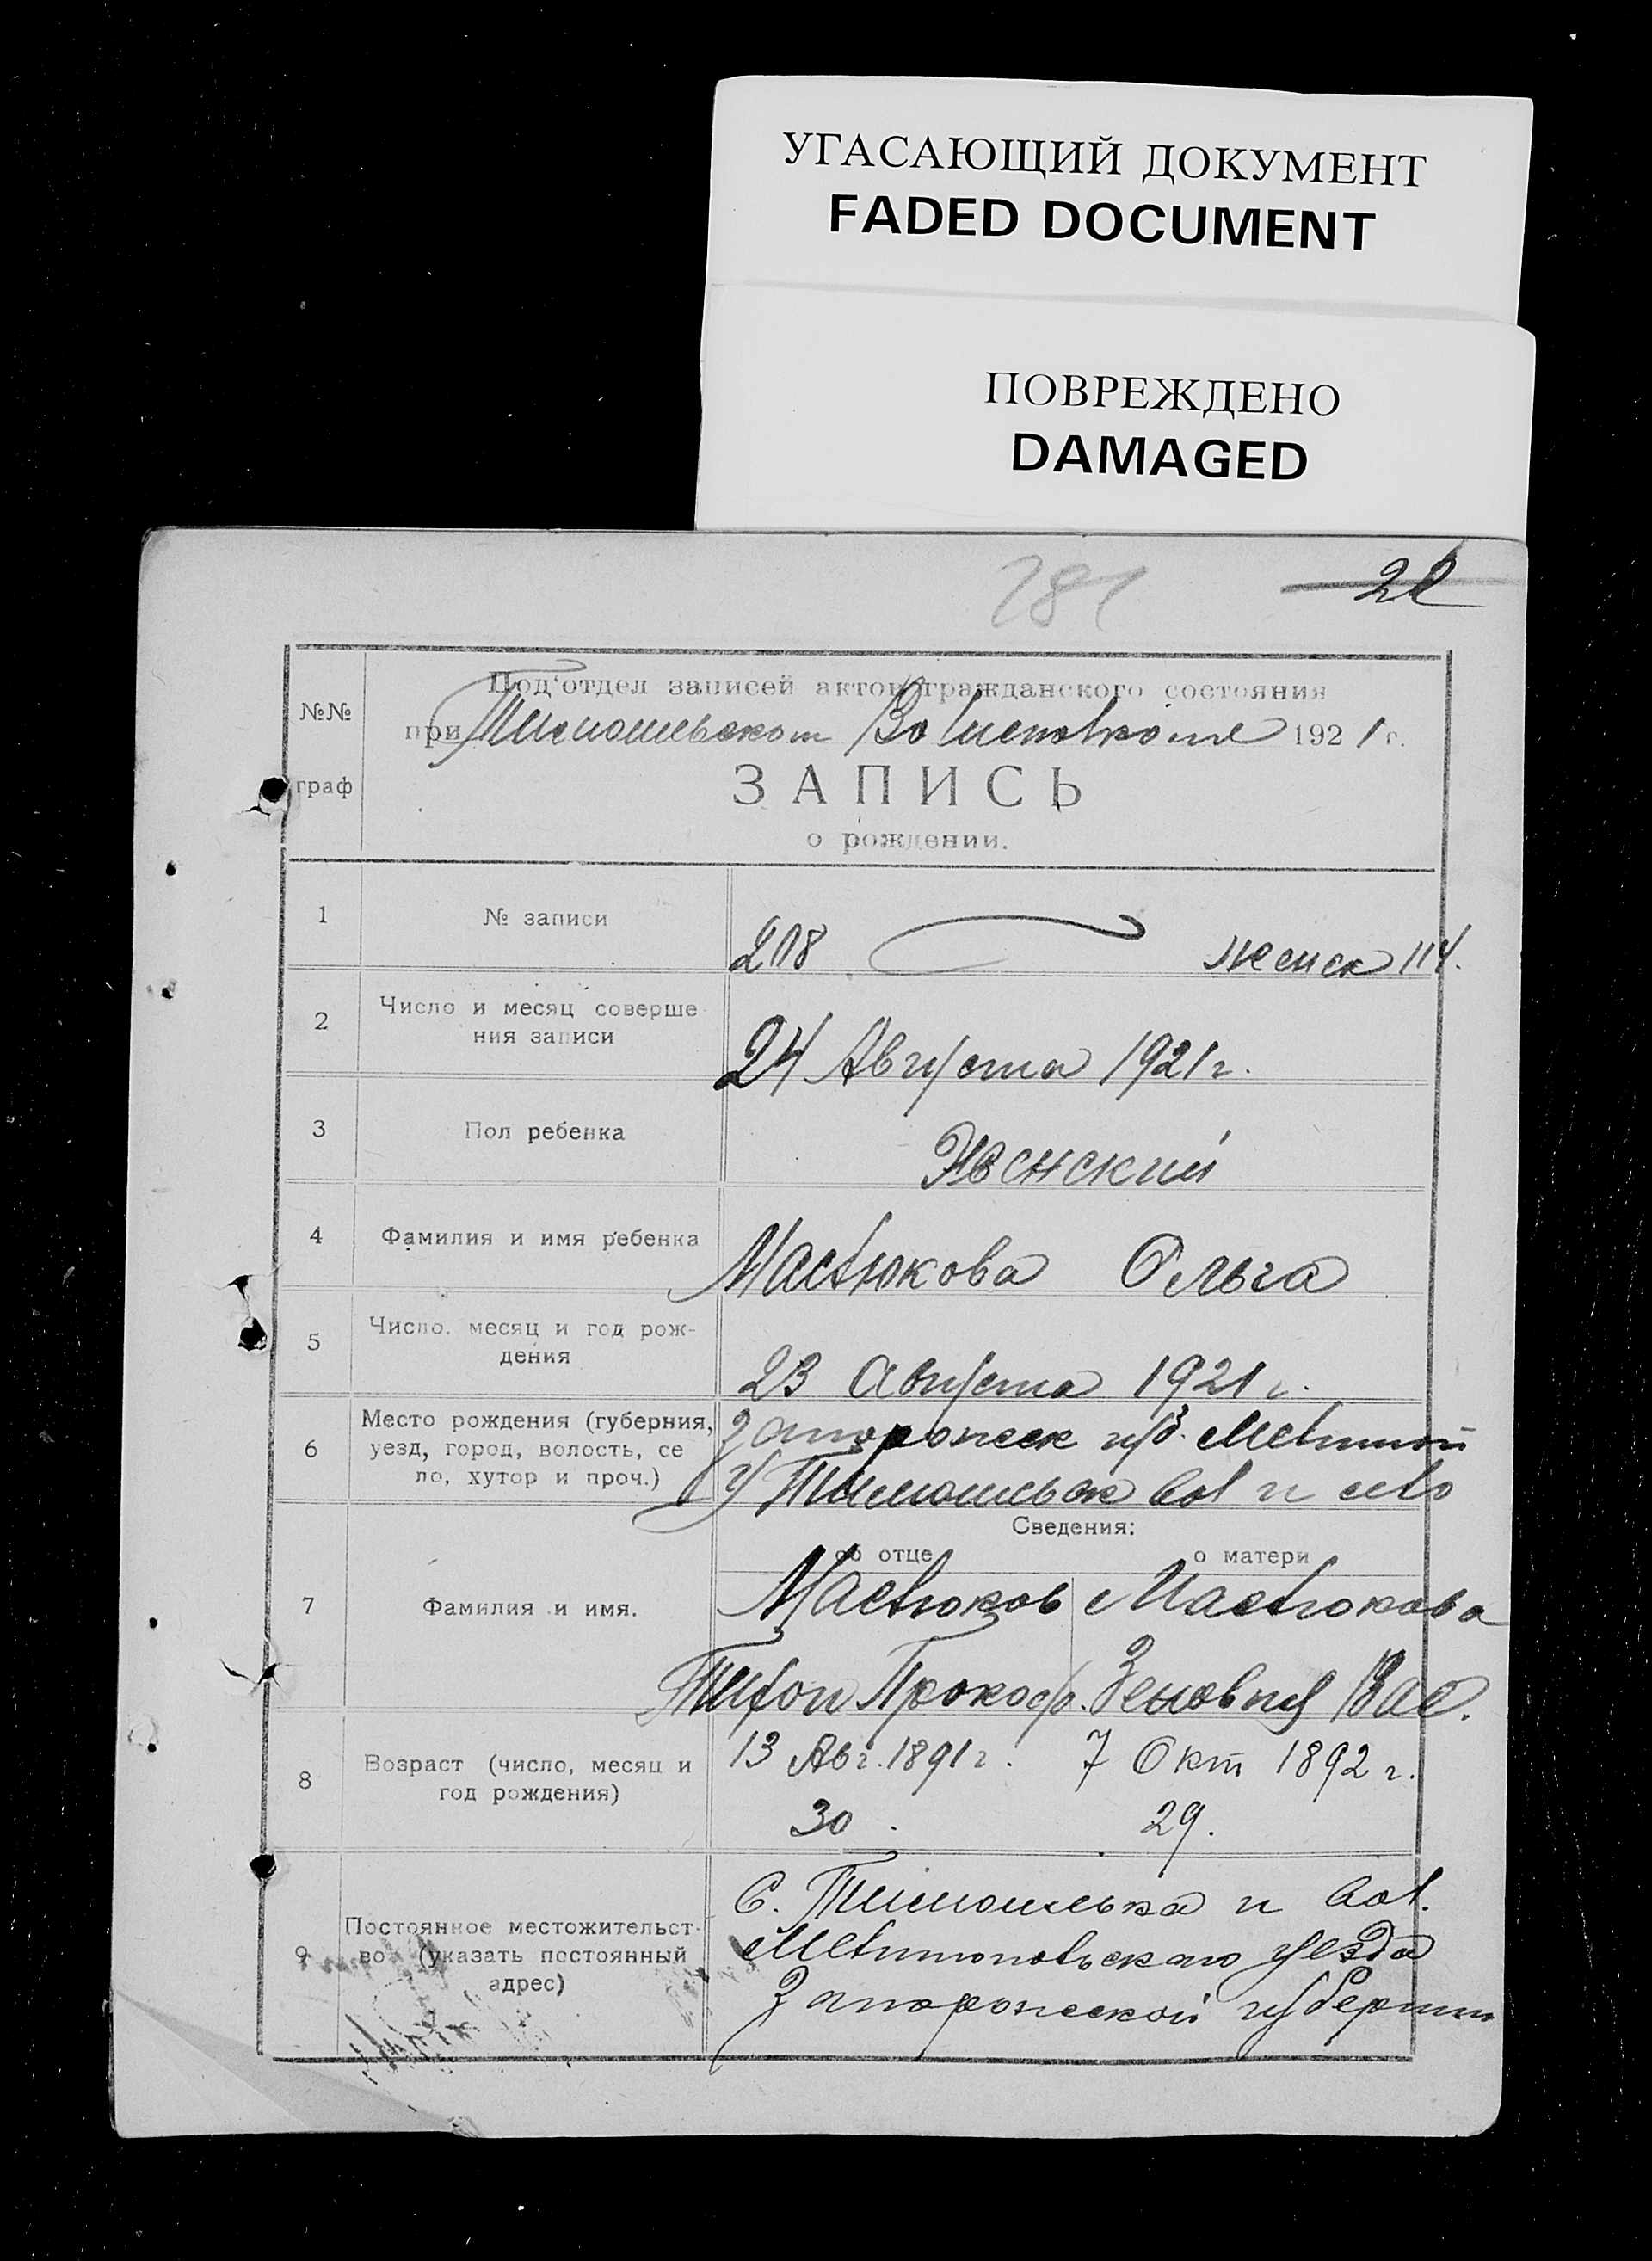 УГАСАЮЩИЙ ДОКУМЕНТ
FADED DOCUMENT
ПОВРЕЖДЕНО
DAMAGED
281
22
№№
граф
Под'отдел записей актов гражданского состояния
при Тимошевском Волисполкоме 1921 г.
ЗАПИСЬ
о рождении.
1 № записи 218 женск 114.
2 Число и месяц соверше
ния записи
24 Августа 1921 г.
3 Пол ребенка Женский
4 Фамилия и имя ребенка Маслюкова Ольга
5 Число, месяц и год рож-
дения
23 Августа 1921 г.
6 Место рождения (губерния,
уезд, город, волость, се
ло, хутор и проч.)
Запорожск губ. Мелитоп
у Тимошевск вол и село
Сведения:
об отце о матери
7 Фамилия и имя. Маслюков Маслюкова
Тихон Прокоф. Зеновия Вас.
8 Возраст (число, месяц и
год рождения)
13 Авг. 1891 г. 7 Окт 1892 г.
30. 29.
9 Постоянное местожительст-
во (указать постоянный
адрес)
С. Тимошевка и вол.
Мелитопольского уезда
Запорожской губернии